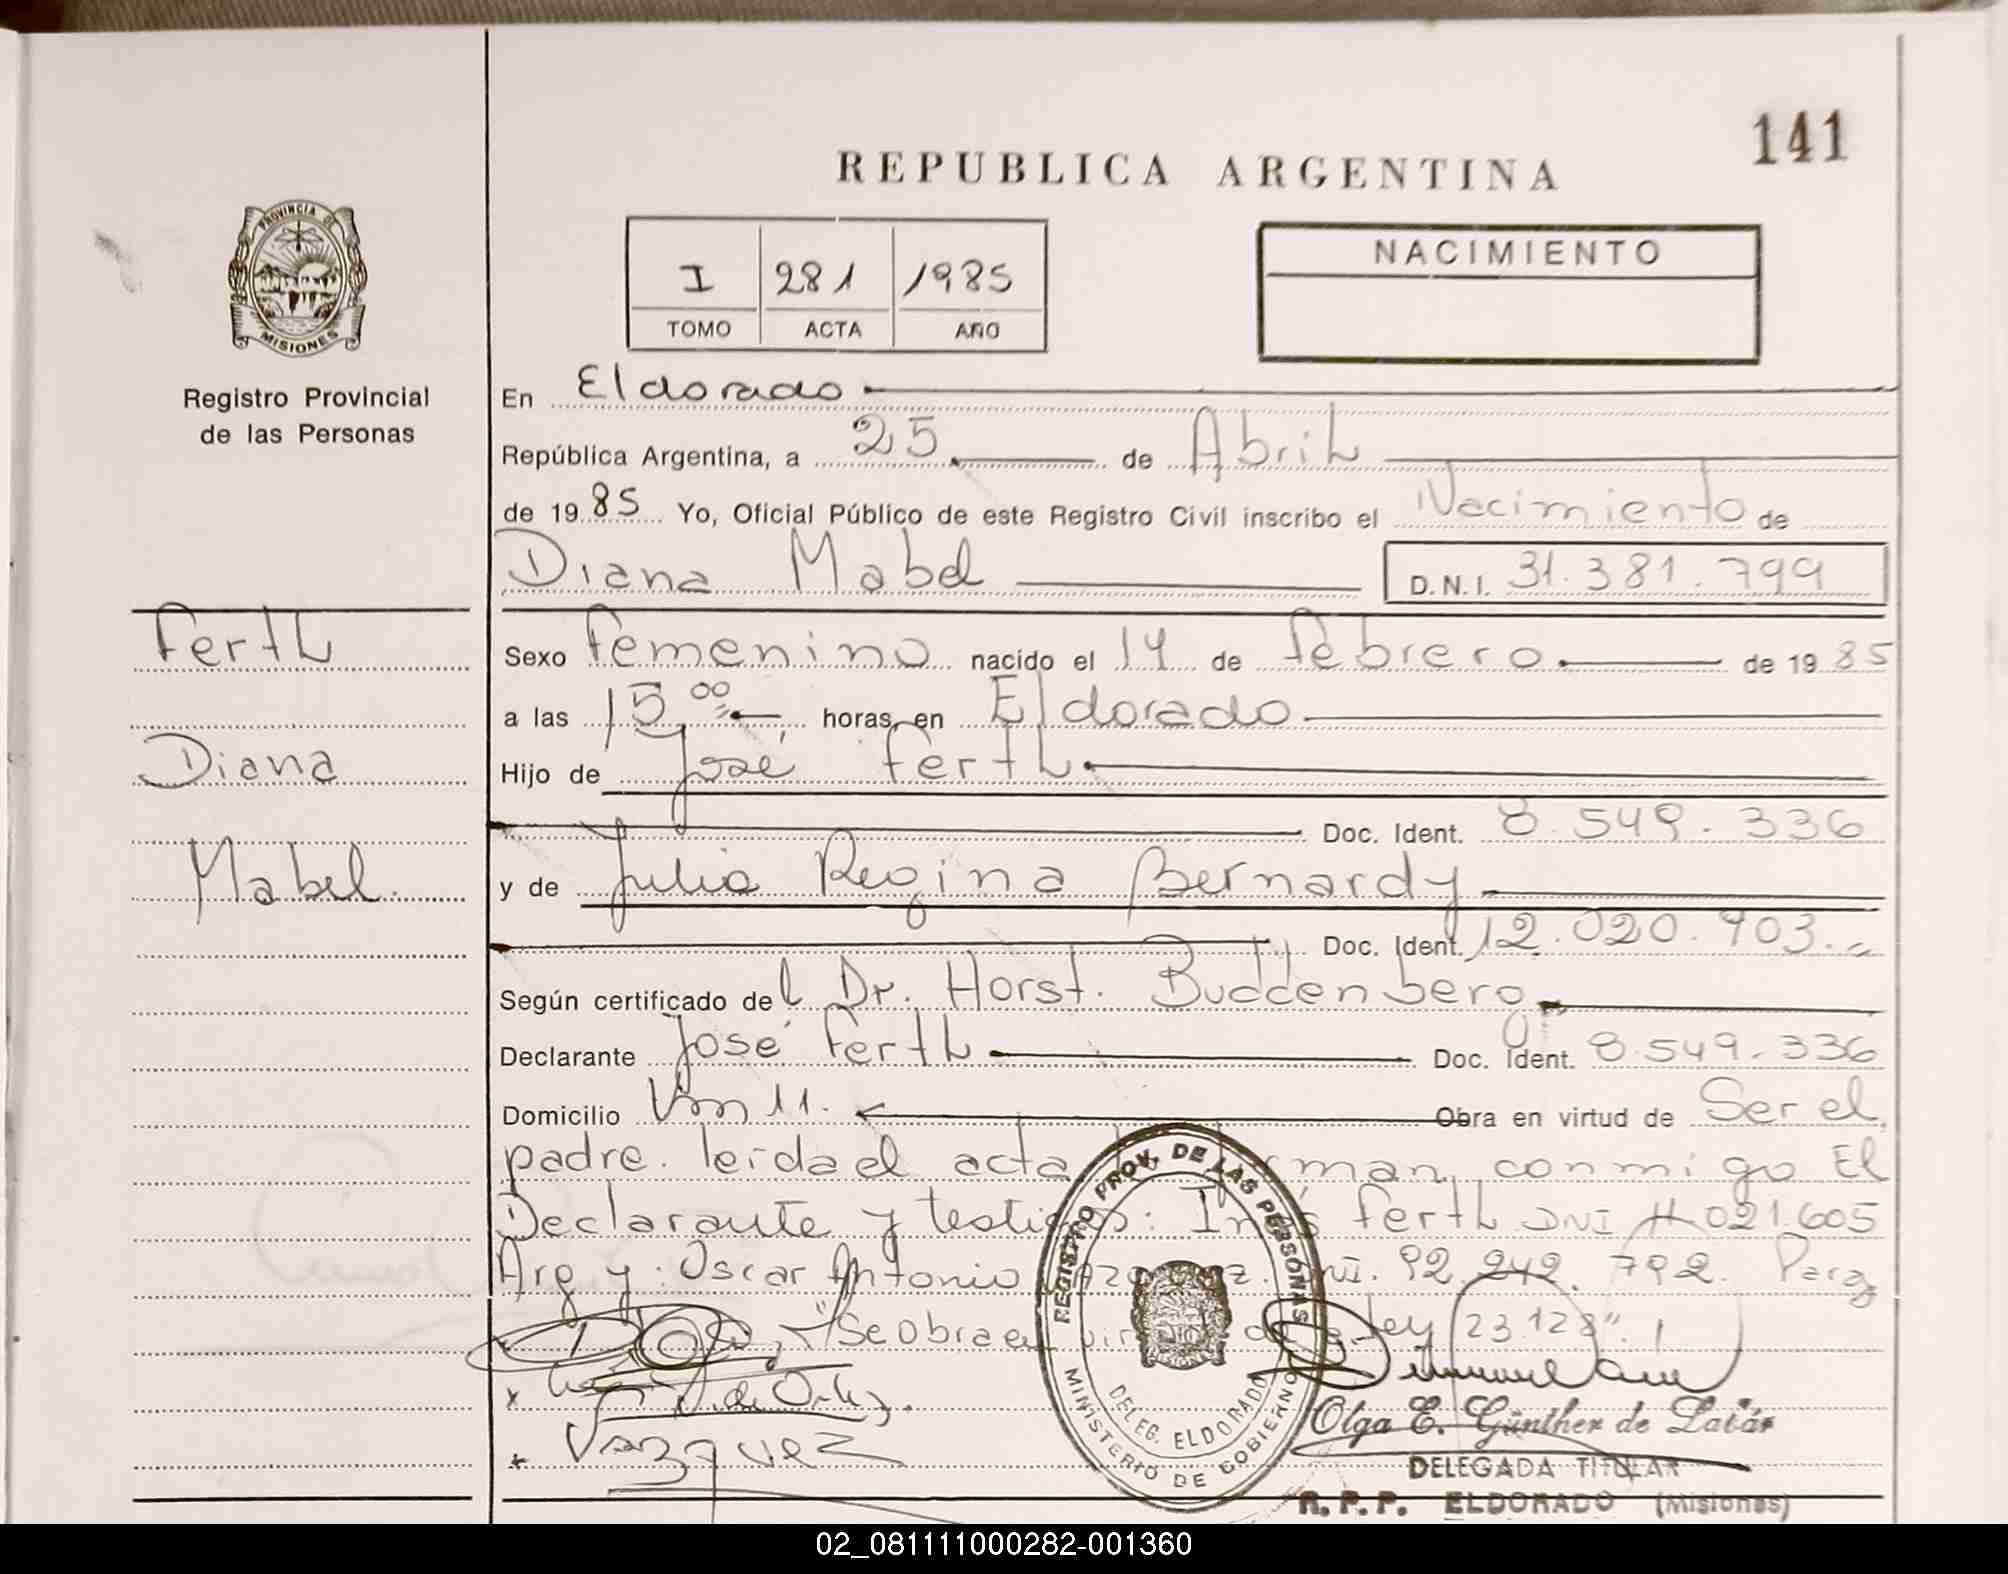 141
REPUBLICA ARGENTINA
PROVINCIA DE
MISIONES
Registro Provincial
de las Personas
I 281 1985
TOMO ACTA AÑO
NACIMIENTO
En Eldorado
República Argentina, a 25 de Abril
de 1985 Yo, Oficial Público de este Registro Civil inscribo el Nacimiento de
Diana Mabel D.N.I. 31.381.799
Ferth
Diana
Mabel.
Sexo Femenino nacido el 14 de Febrero de 1985
a las 15,00 horas, en Eldorado
Hijo de José Ferth
Doc. Ident. 8.549.336
y de Julia Regina Bernardy
Doc. Ident. 12.020.903.
Según certificado del Dr. Horst. Buddenberg
Declarante José Ferth Doc. Ident. 8.549.336
Domicilio Km 11. Obra en virtud de Ser el
padre. leida el acta man conmigo El
Declarante y testigos: Inés Ferth DNI 021.605
Arg y: Oscar Antonio Vazquez. DNI. 92.242.792. Parag
"Se obra en virtud de la Ley 23.128".
de Ortiz.
Vazquez
REGISTRO PROV. DE LAS PERSONAS
MINISTERIO DE GOBIERNO
DELEG. ELDORADO
Olga E. Günther de Latár
DELEGADA TITULAR
R.P.P. ELDORADO (Misiones)
02_081111000282-001360